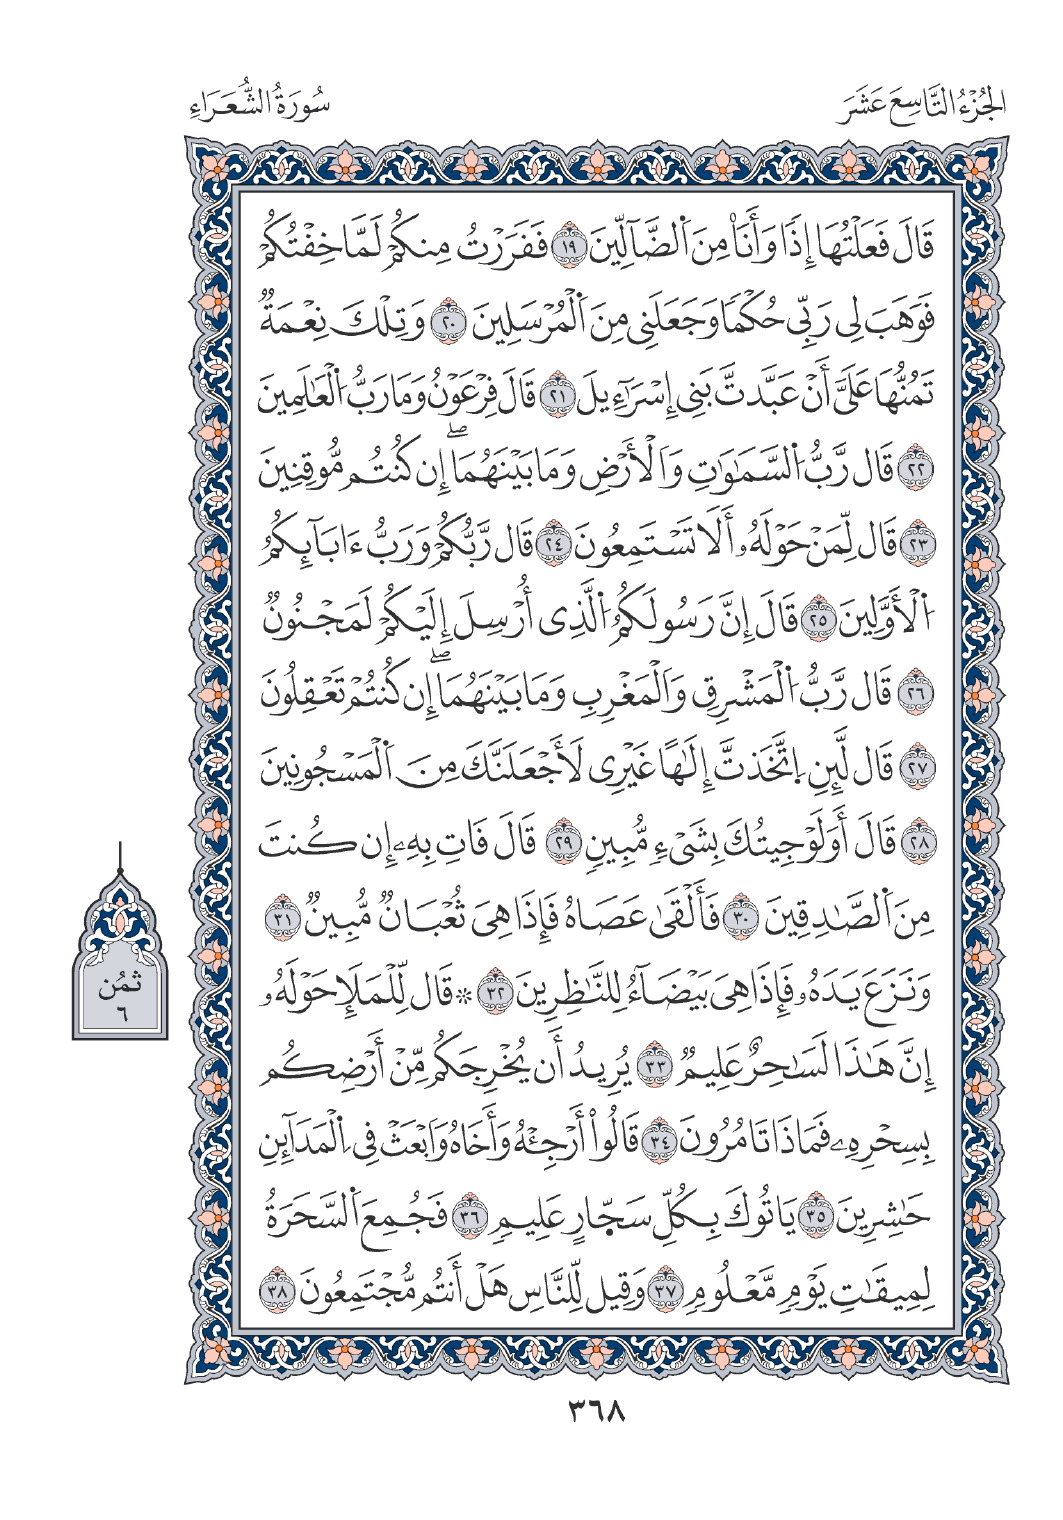 الجُزْءُ التَّاسِعَ عَشَرَ
سُورَةُ الشُّعَرَاءِ
قَالَ فَعَلْتُهَا إِذٗا وَأَنَا۠ مِنَ اَ۬لضَّآلِّينَ ١٩ فَفَرَرْتُ مِنكُمْ لَمَّا خِفْتُكُمْ
فَوَهَبَ لِي رَبِّي حُكْمٗا وَجَعَلَنِي مِنَ اَ۬لْمُرْسَلِينَ ٢٠ وَتِلْكَ نِعْمَةٞ
تَمُنُّهَا عَلَيَّ أَنْ عَبَّدتَّ بَنِي إِسْرَآءِيلَ ٢١ قَالَ فِرْعَوْنُ وَمَا رَبُّ اُ۬لْعَٰلَمِينَ
٢٢ قَال رَّبُّ اُ۬لسَّمَٰوَٰتِ وَالْأَرْضِ وَمَا بَيْنَهُمَاۖ إِن كُنتُم مُّوقِنِينَ
٢٣ قَال لِّمَنْ حَوْلَهُۥ أَلَا تَسْتَمِعُونَ ٢٤ قَال رَّبُّكُمْ وَرَبُّ ءَابَآئِكُمُ
اُ۬لْأَوَّلِينَ ٢٥ قَالَ إِنَّ رَسُولَكُمُ اُ۬لَّذِي أُرْسِلَ إِلَيْكُمْ لَمَجْنُونٞ
٢٦ قَال رَّبُّ اُ۬لْمَشْرِقِ وَالْمَغْرِبِ وَمَا بَيْنَهُمَاۖ إِن كُنتُمْ تَعْقِلُونَ
٢٧ قَال لَّئِنِ اِ۪تَّخَذتَّ إِلَٰهًا غَيْرِي لَأَجْعَلَنَّكَ مِنَ اَ۬لْمَسْجُونِينَ
٢٨ قَالَ أَوَلَوْ جِيتُكَ بِشَيْءٖ مُّبِينٖ ٢٩ قَالَ فَاتِ بِهِۦ إِن كُنتَ
مِنَ اَ۬لصَّٰدِقِينَ ٣٠ فَأَلْقَىٰ عَصَاهُ فَإِذَا هِيَ ثُعْبَانٞ مُّبِينٞ ٣١
وَنَزَعَ يَدَهُۥ فَإِذَا هِيَ بَيْضَآءُ لِلنَّٰظِرِينَ ٣٢ ۞ قَال لِّلْمَلَإِ حَوْلَهُۥ
إِنَّ هَٰذَا لَسَٰحِرٌ عَلِيمٞ ٣٣ يُرِيدُ أَن يُخْرِجَكُم مِّنْ أَرْضِكُم
بِسِحْرِهِۦ فَمَاذَا تَامُرُونَ ٣٤ قَالُواْ أَرْجِئْهُ وَأَخَاهُ وَابْعَثْ فِي اِ۬لْمَدَآئِنِ
حَٰشِرِينَ ٣٥ يَاتُوكَ بِكُلِّ سَحّ۪ارٍ عَلِيمٖ ٣٦ فَجُمِعَ اَ۬لسَّحَرَةُ
لِمِيقَٰتِ يَوْمٖ مَّعْلُومٖ ٣٧ وَقِيل لِّلنَّاسِ هَلْ أَنتُم مُّجْتَمِعُونَ ٣٨
ثُمُن
٦
٣٦٨